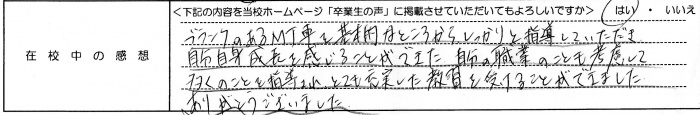 <下記の内容を当校ホームページ「卒業生の声」に掲載させていただいてもよろしいですか> はい ・ いいえ
在校中の感想
ブランクのあるMT車を基本的なところからしっかりと指導していただき
自分自身成長を感じることができました 自分の職業のことも考慮して
多くのことを指導され とても充実した教習を受けることができました
ありがとうございました